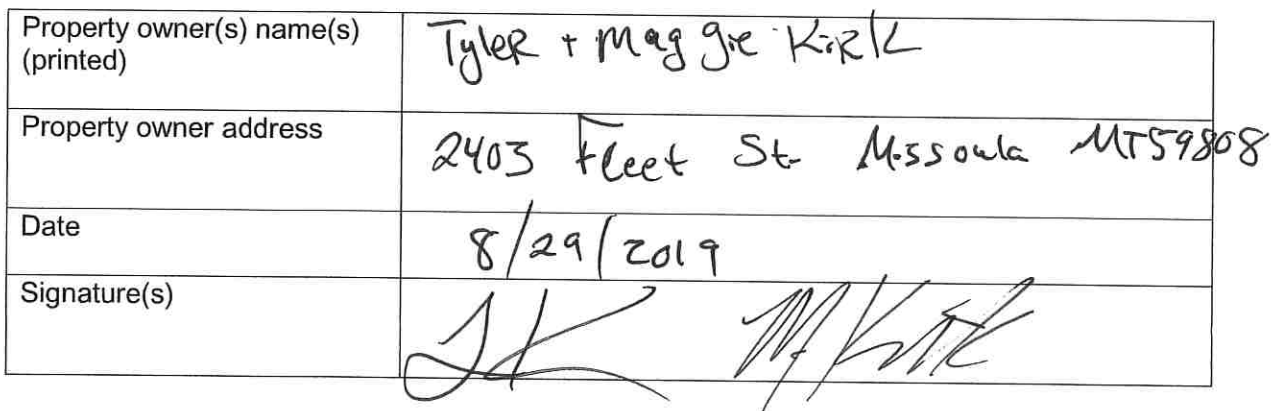 Property owner(s) name(s) Tyler + Maggie Kirk
(printed)
Property owner address 2403 Fleet St. Missoula MT 59808
Date 8/29/2019
Signature(s) TK M. Kirk